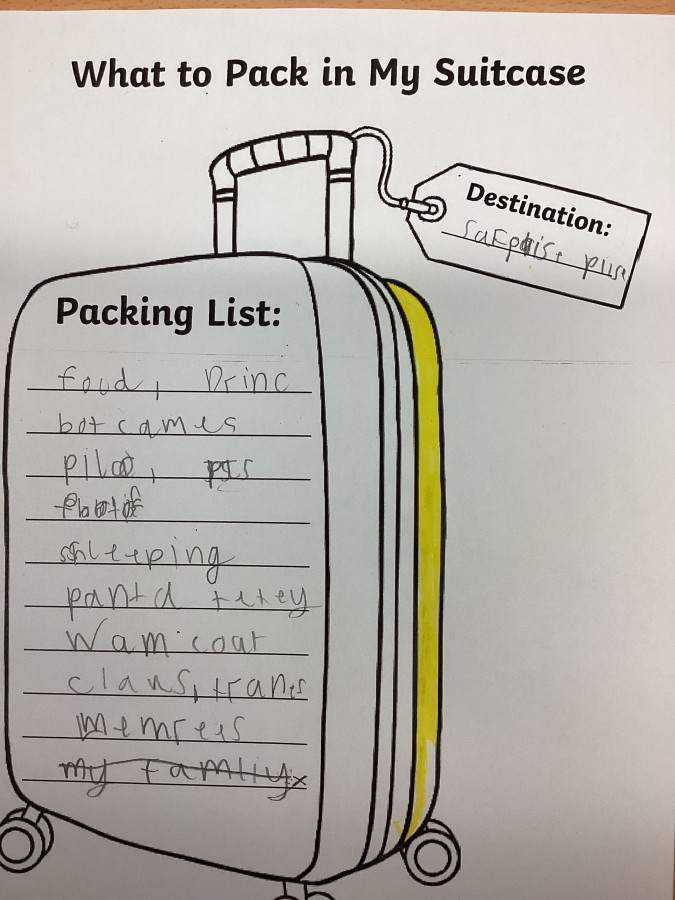 What to Pack in My Suitcase
Destination:
Packing List:
foud, Drinc
bot cames
pilot,
sleeping
panta tetey
Wam coat
claus, tranes
memreis
my famliy